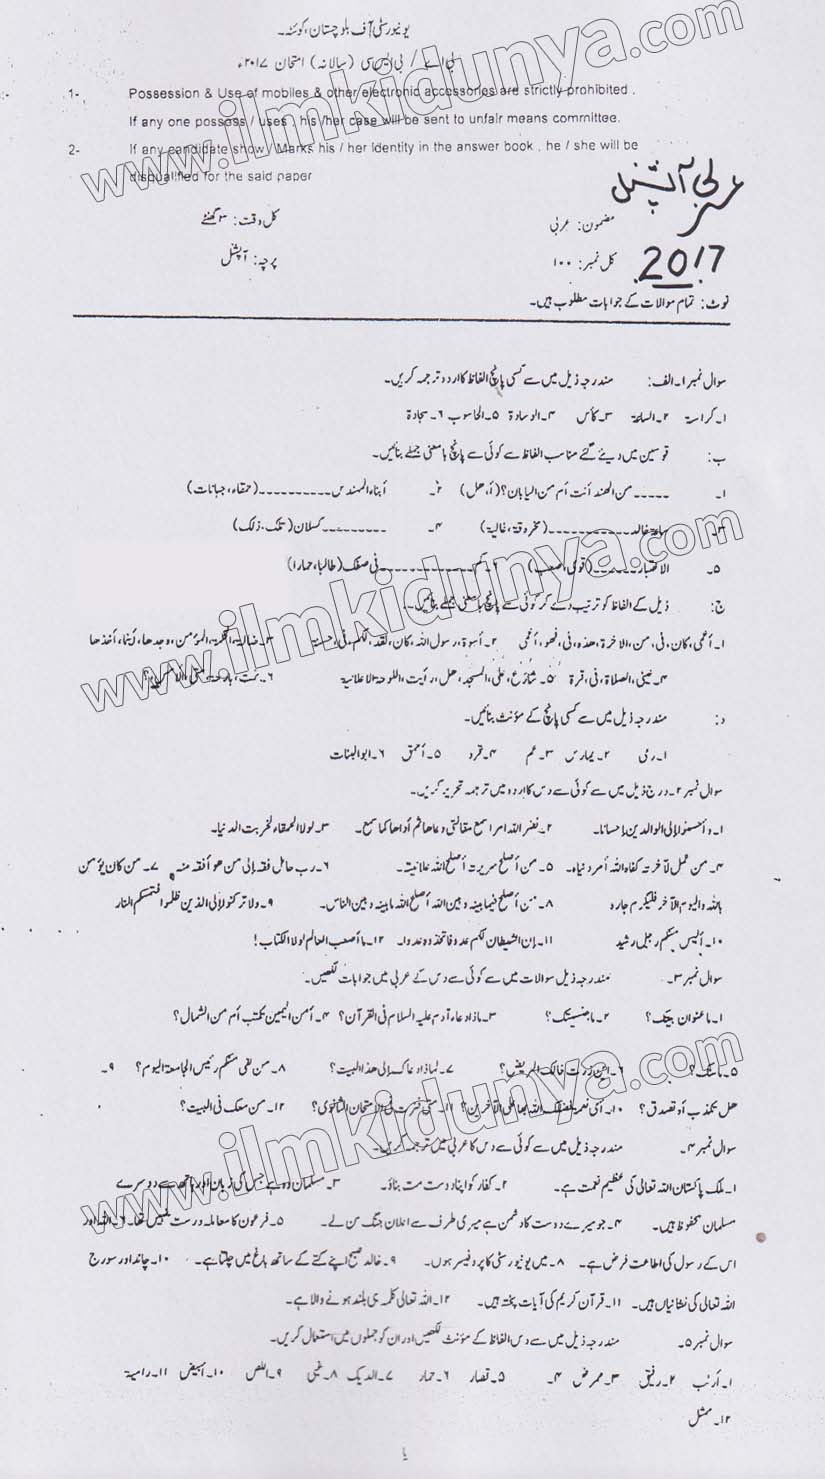 یونیورسٹی آف بلوچستان، کوئٹہ۔
بی اے / بی ایس سی (سالانہ) امتحان ۲۰۱۷ء
1- Possession & Use of mobiles & other electronic accessories are strictly prohibited .
If any one possess / uses , his /her case will be sent to unfair means committee.
2- If any candidate show / Marks his / her Identity in the answer book , he / she will be
disqualified for the said paper
عربی آپشنل
مضمون: عربی کل وقت: ۳ گھنٹے
2017
کل نمبر: ۱۰۰ پرچہ: آپشنل
نوٹ: تمام سوالات کے جوابات مطلوب ہیں۔
سوال نمبر ۱۔ الف: مندرجہ ذیل میں سے کسی پانچ الفاظ کا اردو ترجمہ کریں۔
۱۔ کراسۃ ۲۔ الساعۃ ۳۔ کأس ۴۔ الوسادۃ ۵۔ الحاسوب ۶۔ سجادۃ
ب: قوسین میں دیئے گئے مناسب الفاظ سے کوئی سے پانچ بامعنی جملے بنائیں۔
۱۔ ۔۔۔۔۔ من الھند أنت أم من الیابان؟ (أ، ھل) ۲۔ أبناء المھندس ۔۔۔۔۔۔۔۔۔۔ (حمقاء، جبانات)
۳۔ ساعۃ خالد ۔۔۔۔۔۔۔۔۔۔ (مخروقۃ، غالیۃ) ۴۔ ۔۔۔۔۔۔۔۔۔ کسلان (تلک۔ ذلک)
۵۔ الاختبار ۔۔۔۔۔ (قوی، صعب) ۶۔ کم ۔۔۔۔۔۔۔۔۔ فی صفک (طالبا، حمارا)
ج: ذیل کے الفاظ کو ترتیب دے کر کوئی سے پانچ بامعنی جملے بنائیں۔
۱۔ أعمی، کان، فی، من، الاخرۃ، ھذہ، فی، فھو، أعمی ۲۔ أسوۃ، رسول اللہ، کان، لقد، لکم، فی، حسنۃ ۳۔ ضالۃ، الحکمۃ، المؤمن، وجدھا، أینما، أخذھا
۴۔ عینی، الصلاۃ، فی، قرۃ ۵۔ شارع، علی، المسجد، ھل، رأیت، اللوحۃ الاعلانیۃ ۶۔
د: مندرجہ ذیل میں سے کسی پانچ کے مؤنث بنائیں۔
۱۔ رمی ۲۔ یمارس ۳۔ عم ۴۔ قرد ۵۔ أحمق ۶۔ ابو البنات
سوال نمبر ۲۔ درج ذیل میں سے کوئی سے دس کا اردو میں ترجمہ تحریر کریں۔
۱۔ وأحسنوا إلی الوالدین إحسانا۔ ۲۔ نضر اللہ امرأ سمع مقالتی وعاھا ثم أداھا کما سمع۔ ۳۔ لولا الحمقاء لخربت الدنیا۔
۴۔ من عمل لآخرتہ کفاہ اللہ أمر دنیاہ۔ ۵۔ من أصلح سریرتہ أصلح اللہ علانیتہ۔ ۶۔ رب حامل فقہ إلی من ھو أفقہ منہ ۷۔ من کان یؤمن
باللہ والیوم الآخر فلیکرم جارہ ۸۔ من أصلح فیما بینہ وبین اللہ أصلح اللہ ما بینہ وبین الناس۔ ۹۔ ولا ترکنوا إلی الذین ظلموا فتمسکم النار
۱۰۔ ألیس منکم رجل رشید ۱۱۔ إن الشیطان لکم عدو فاتخذوہ عدوا۔ ۱۲۔ ما أصعب العالم لولا الکتاب!
سوال نمبر ۳۔ مندرجہ ذیل سوالات میں سے کوئی سے دس کے عربی میں جوابات لکھیں۔
۱۔ ما عنوان بیتک؟ ۲۔ ما جنسیتک؟ ۳۔ ماذا دعاء آدم علیہ السلام فی القرآن؟ ۴۔ أمن الیمین تکتب أم من الشمال؟
۵۔ ما سنک؟ ۶۔ أین زرت خالک المریض؟ ۷۔ لماذا دعاک إلی ھذا البیت؟ ۸۔ من لقی منکم رئیس الجامعۃ الیوم؟ ۹۔
ھل تکذب أو تصدق؟ ۱۰۔ أی نعمۃ فضلک اللہ بھا علی الآخرین؟ ۱۱۔ فی الامتحان الثانوی؟ ۱۲۔ من معک فی البیت؟
سوال نمبر ۴۔ مندرجہ ذیل میں سے کوئی سے دس کا عربی میں ترجمہ کریں۔
۱۔ ملک پاکستان اللہ تعالی کی عظیم نعمت ہے۔ ۲۔ کفار کو اپنا دوست مت بناؤ۔ ۳۔ مسلمان وہ ہے جس کی زبان اور ہاتھ سے دوسرے
مسلمان محفوظ ہیں۔ ۴۔ جو میرے دوست کا دشمن ہے میری طرف سے اعلان جنگ سن لے۔ ۵۔ فرعون کا معاملہ درست نہیں تھا۔ ۶۔ اللہ اور
اس کے رسول کی اطاعت فرض ہے۔ ۸۔ میں یونیورسٹی کا پروفیسر ہوں۔ ۹۔ خالد صبح اپنے کتے کے ساتھ باغ میں چلتا ہے۔ ۱۰۔ چاند اور سورج
اللہ تعالی کی نشانیاں ہیں۔ ۱۱۔ قرآن کریم کی آیات پختہ ہیں۔ ۱۲۔ اللہ تعالی کلمہ ہی بلند ہونے والا ہے۔
سوال نمبر ۵۔ مندرجہ ذیل میں سے دس الفاظ کے مؤنث لکھیں اور ان کو جملوں میں استعمال کریں۔
۱۔ أرنب ۲۔ رفیق ۳۔ ممرض ۴۔ ۵۔ قصار ۶۔ حمار ۷۔ الدیک ۸۔ غبی ۹۔ اللص ۱۰۔ أبیض ۱۱۔ رامیۃ
۱۲۔ ممثل
www.ilmkidunya.com
www.ilmkidunya.com
www.ilmkidunya.com